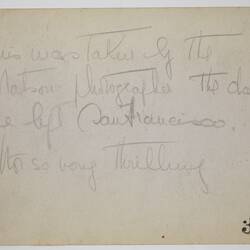 was taken by the
Matson photographer the da
left San Francisco.
Not so very thrilling